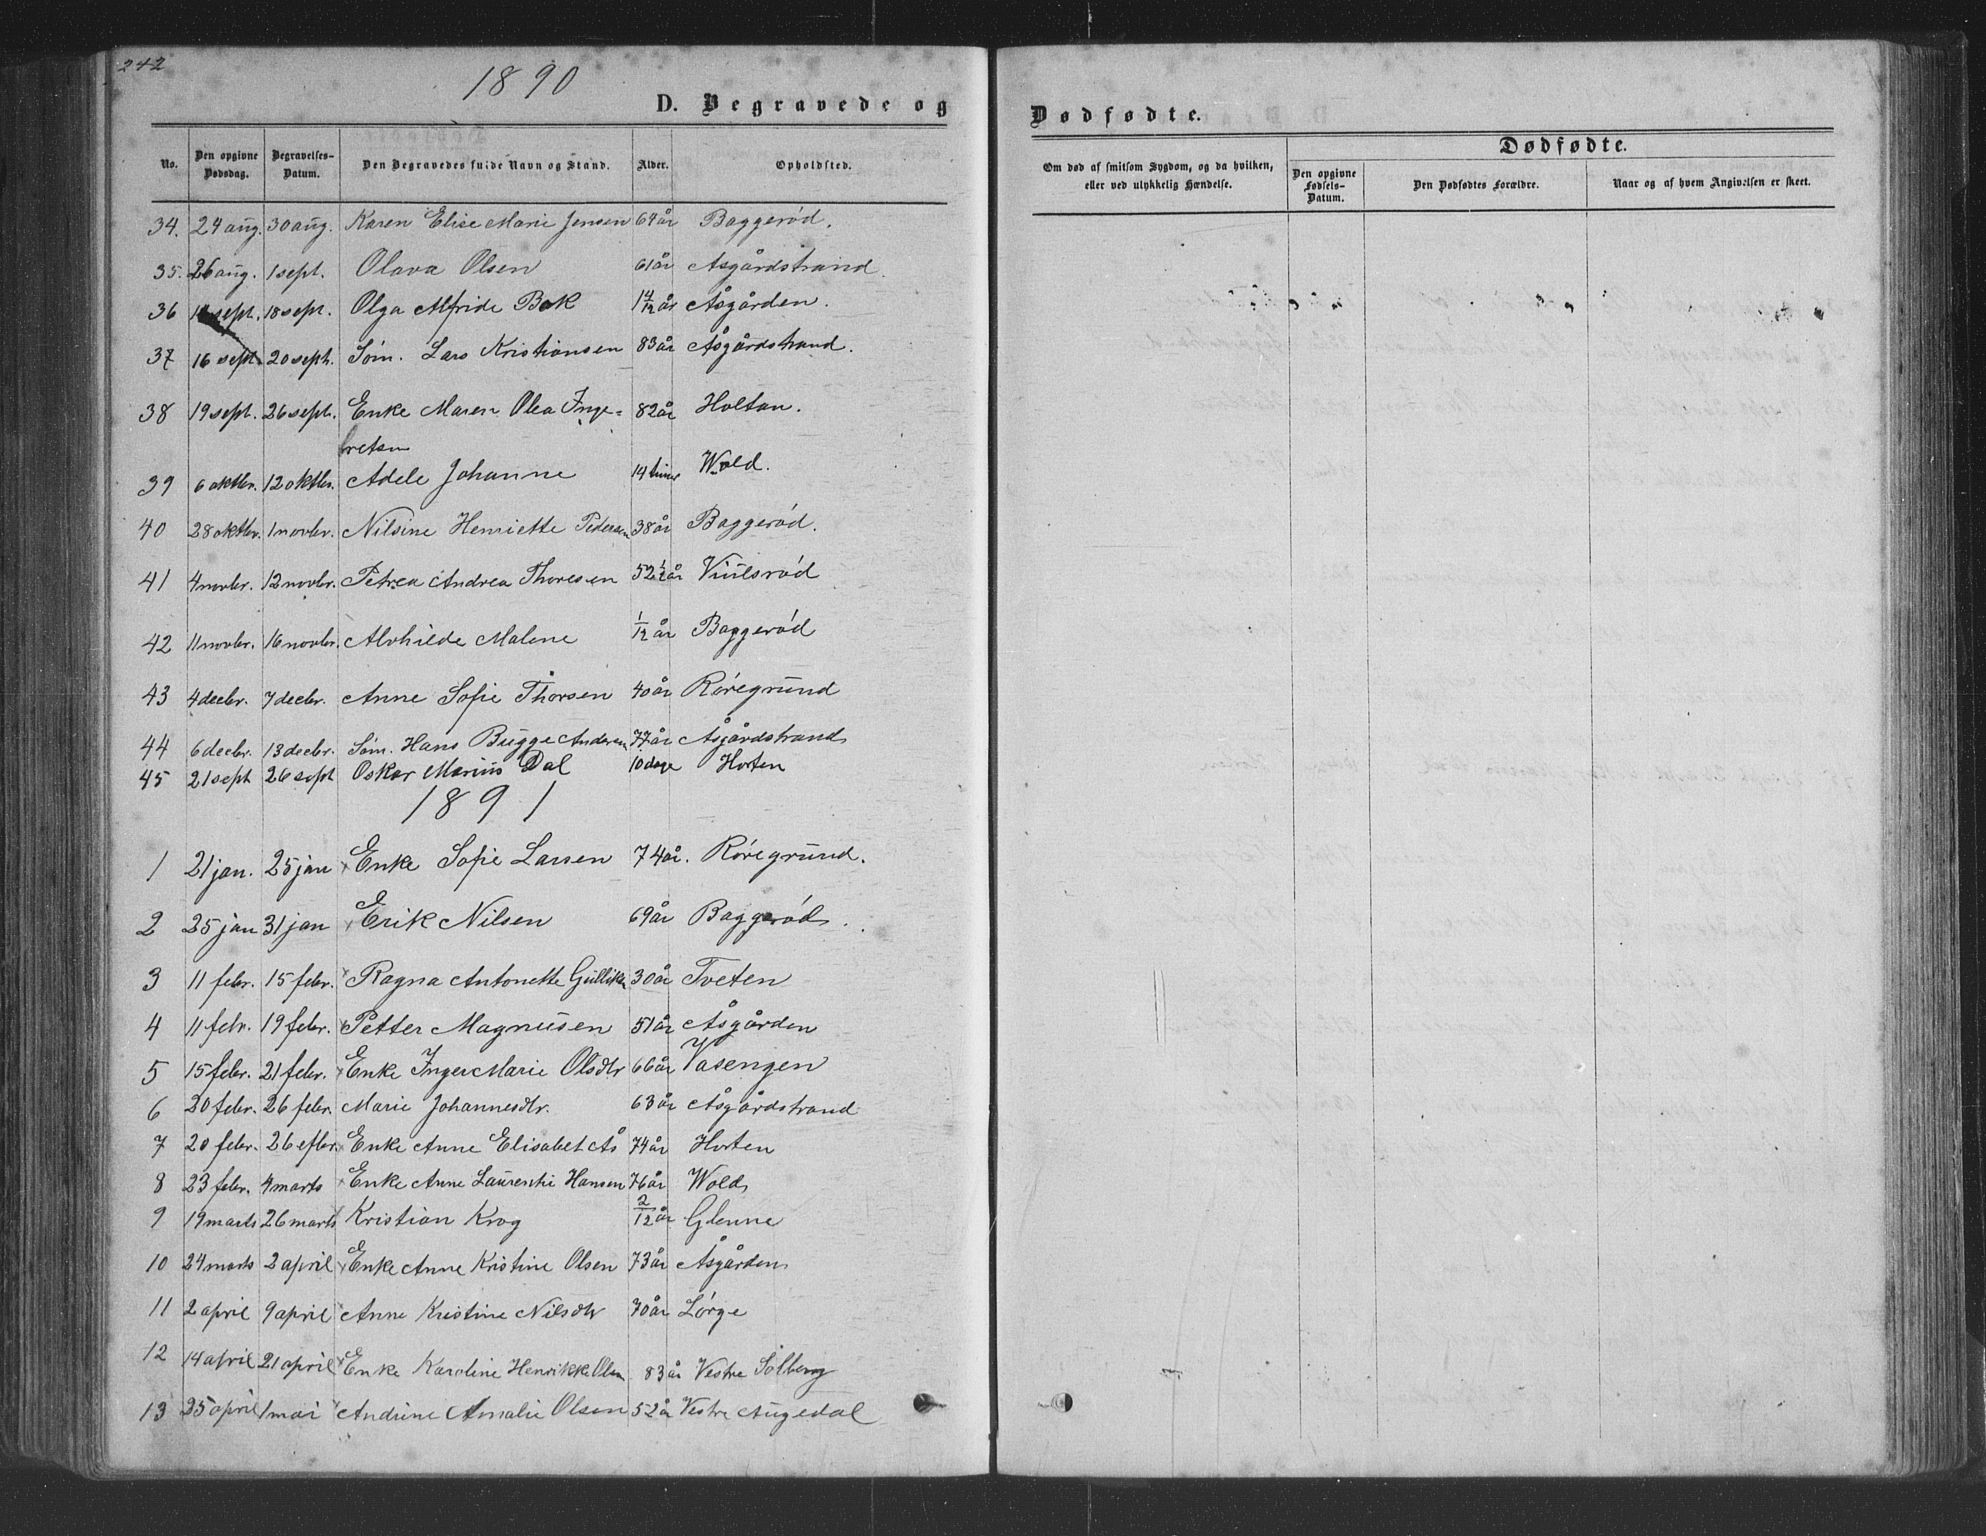 242
1890
D. Begravede og
Dødfødte.
No. Den opgivne Dødsdag. Begravelses-Datum. Den Begravedes fulde Navn og Stand. Alder. Opholdsted.
Om død af smitsom Sygdom, og da hvilken, eller ved ulykkelig Hændelse.
Dødfødte.
Den opgivne Fødsels-Datum. Den Dødfødtes Forældre. Naar og af hvem Angivelsen er skeet.
34. 24 aug. 30 aug. Karen Elise Marie Jensen 64 år Baggerød.
35. 26 aug. 1 sept. Olava Olsen 61 år Åsgårdstrand.
36 sept. 18 sept. Olga Alfride Bok 1 4/12 år Åsgården.
37 16 sept. 20 sept. Søm. Lars Kristiansen 83 år Åsgårdstrand.
38 19 sept. 26 sept. Enke Maren Olea Inge=
bretsen 82 år Holtan.
39 6 oktbr. 12 oktbr. Adele Johanne 14 timer Wold.
40 28 oktbr. 1 novbr. Nilsine Henriette Pedersen 38 år Baggerød.
41 4 novbr. 12 novbr. Petrea Andrea Thoresen 52 1/2 år Viulsrød
42 11 novbr. 16 novbr. Alvhilde Malene 1/12 år Baggerød
43 4 decbr. 7 decbr. Anne Sofie Thorsen 40 år Røregrund
44 6 decbr. 13 decbr. Søm. Hans Bugge Andersen 77 år Åsgårdstrand
45 21 sept 26 sept Oskar Marius Dal 10 dage Horten
1891
1 21 jan. 25 jan Enke Sofie Larsen 74 år. Røregrund.
2 25 jan 31 jan Erik Nilsen 69 år Baggerød.
3 11 febr. 15 febr. Ragna Antonette Gulliksen 30 år Tveten
4 11 febr. 19 febr. Petter Magnusen 51 år Åsgården
5 15 febr. 21 febr. Enke Inger Marie Olsdtr 66 år Vasengen
6 20 febr. 26 febr. Marie Johannesdtr. 63 år Åsgårdstrand
7 20 febr. 26 efbr. Enke Anne Elisabet Ås 74 år Horten
8 23 febr. 4 marts Enke Anne Laurentie Hansen 76 år Wold
9 19 marts 26 marts Kristian Krog 2/12 år Glenne
10 24 marts 2 april Enke Anne Kristine Olsen 73 år Åsgården
11 2 april 9 april Anne Kristine Nilsdtr 70 år Lørge
12 14 april 21 april Enke Karoline Henrikke Olsen 83 år Vestre Solberg
13 25 april 1 mai Andrine Amalie Olsen 52 år Vestre Augedal